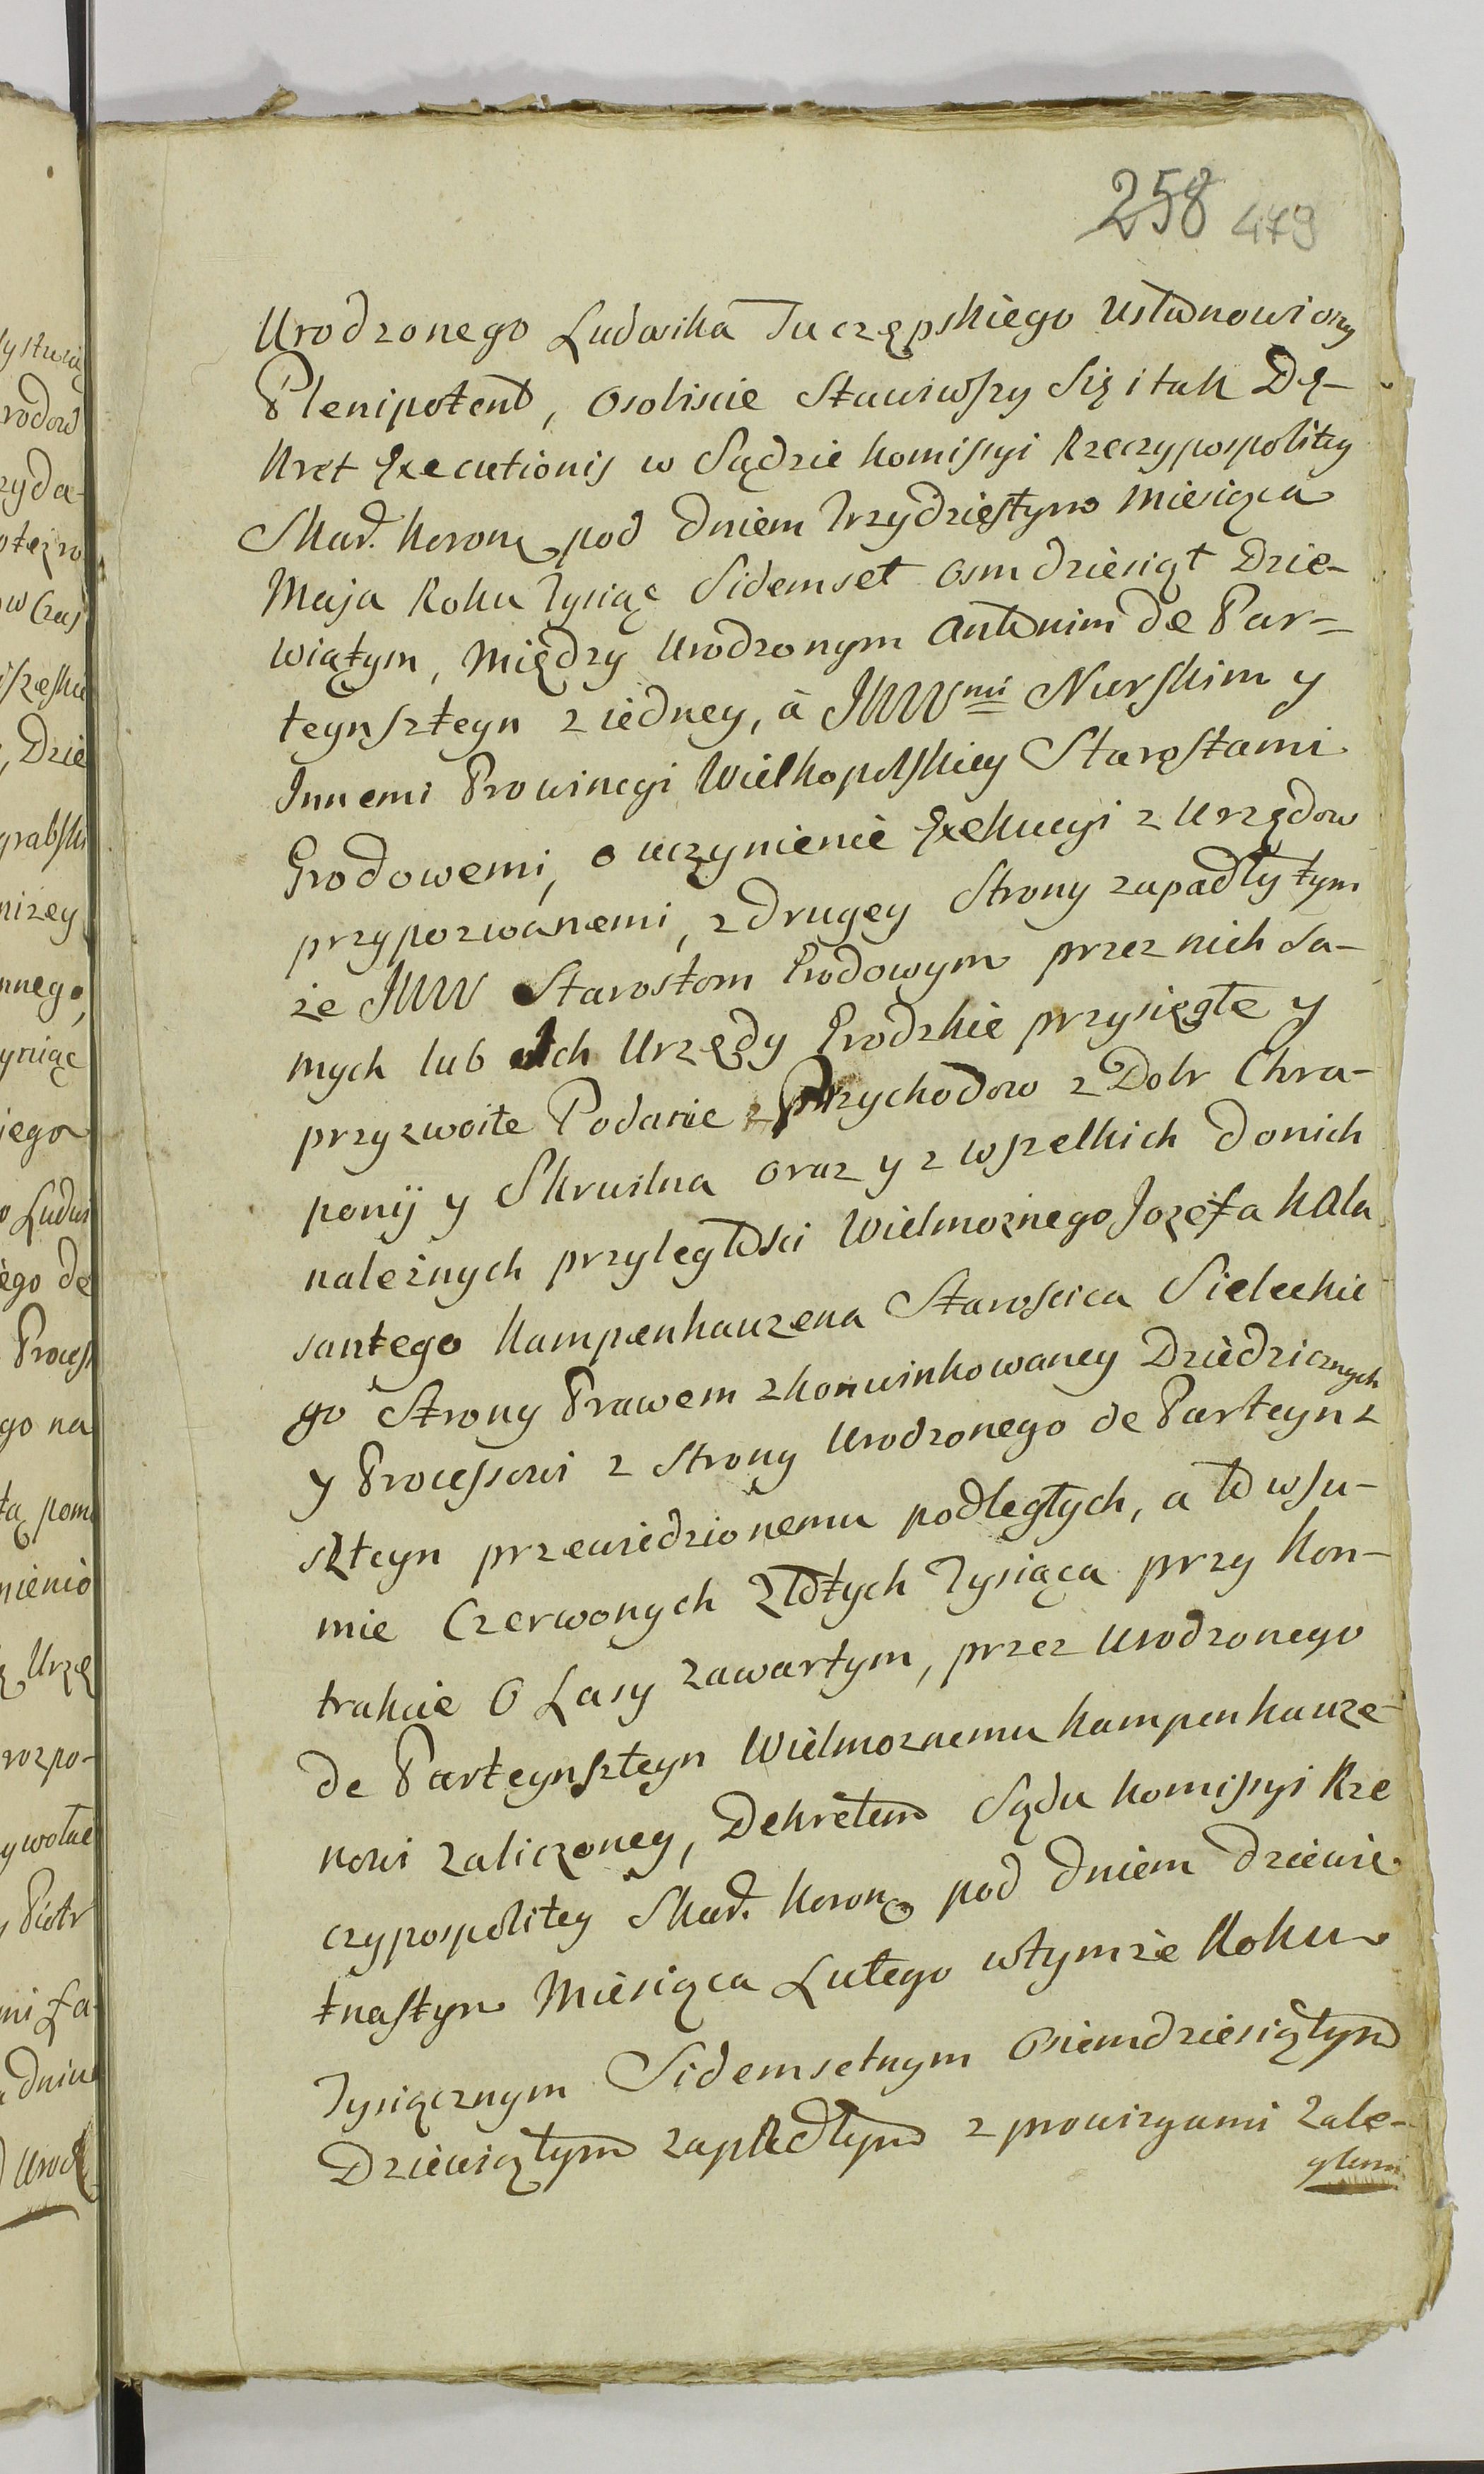 258 479
Urodzonego Ludwika Tuczępskiego ustanowiony
Plenipotent, osobiscie Stawiwszy Się i tak De-
kret Executionis w Sądzie Komissyi Rzeczypospolitey
Skar. Koronę pod dniem Trzydziestym Miesiąca
Maja Roku Tysiąc Sidemset osmdziesiąt Dzie-
wiątym, między Urodzonym Antonim de Par-
teynszteyn z iedney, a JWWmi Nurskim y
Innemi Prowincyi Wielkopolskiey Starostami
Grodowemi, o uczynienie Exekucyi z Urzędow
przypozwanemi, z drugey Strony zapadły tym
że JWW Starostom Grodowym przez nich sa-
mych lub ich Urzędy Grodzkie przysięgłe y
przyzwoite Podanie Przychodow z Dobr Chra-
ponÿ y Skrwilna oraz y z wszelkich do nich
należnych przyległości Wielmożnego Jozefa Kala
santego Kampenhauzena Starościca Sieleckie
go Strony Prawem zkonwinkowaney Dziedzicznych
y Processowi z Strony Urodzonego de Parteyn z
szteyn przewiedzionemu podległych, a to w Su-
mie Czerwonych Złotych Tysiąca przy Kon-
trakcie O Lasy zawartym, przez Urodzonego
de Parteynszteyn Wielmożnemu Kampenhauze-
nowi zaliczoney, Dekretem Sądu Komissyi Rze
czypospolitey Skar. Koronę pod dniem dziewie
tnastym Miesiąca Lutego w tymże Roku
Tysiącznym Sidemsetnym Osiemdziesiątym
Dziewiątym zapadłym z prowizyami Zale-
głemi
ystwie
rodow
zyda-
w Czas
, Dzie
grabsk
nizey
nnego,
yniąc
iego
o Ludwi
iego de
Process
go na
tą pom
mienio
Urzę
rozpo-
ywotne
Piotr
dniu
Urodz